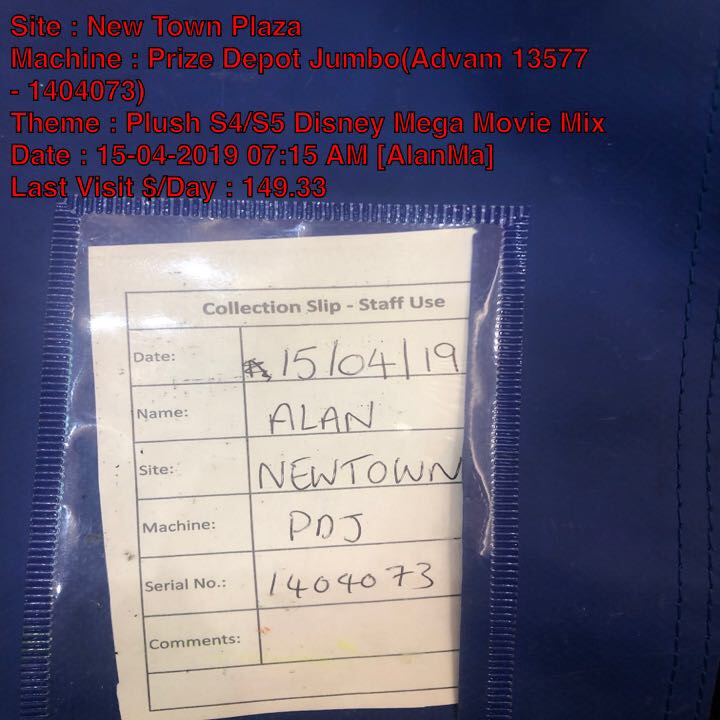 Site : New Town Plaza
Machine : Prize Depot Jumbo(Advam 13577
- 1404073)
Theme : Plush S4/S5 Disney Mega Movie Mix
Date : 15-04-2019 07:15 AM [AlanMa]
Last Visit $/Day : 149.33
Collection Slip - Staff Use
Date: 15/04/19
Name: ALAN
Site: NEWTOWN
Machine: PDJ
Serial No.: 1404073
Comments: